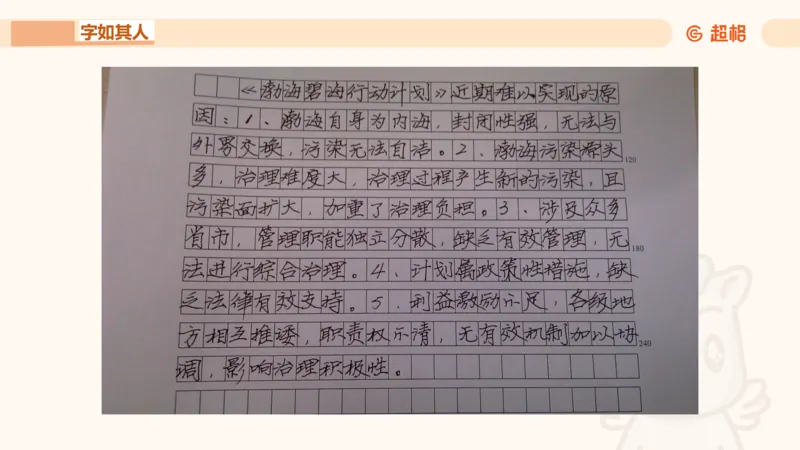 字如其人
超格
《渤海碧海行动计划》近期难以实现的原
因：1、渤海自身为内海，封闭性强，无法与
外界交换，污染无法自洁。2、渤海污染源头
120
多，治理难度大，治理过程产生新的污染，且
污染面扩大，加重了治理负担。3、涉及众多
省市，管理职能独立分散，缺乏有效管理，无
180
法进行综合治理。4、计划属政策性措施，缺
乏法律有效支持。5、利益激励不足，各级地
方相互推诿，职责权不清，无有效机制加以协
240
调，影响治理积极性。